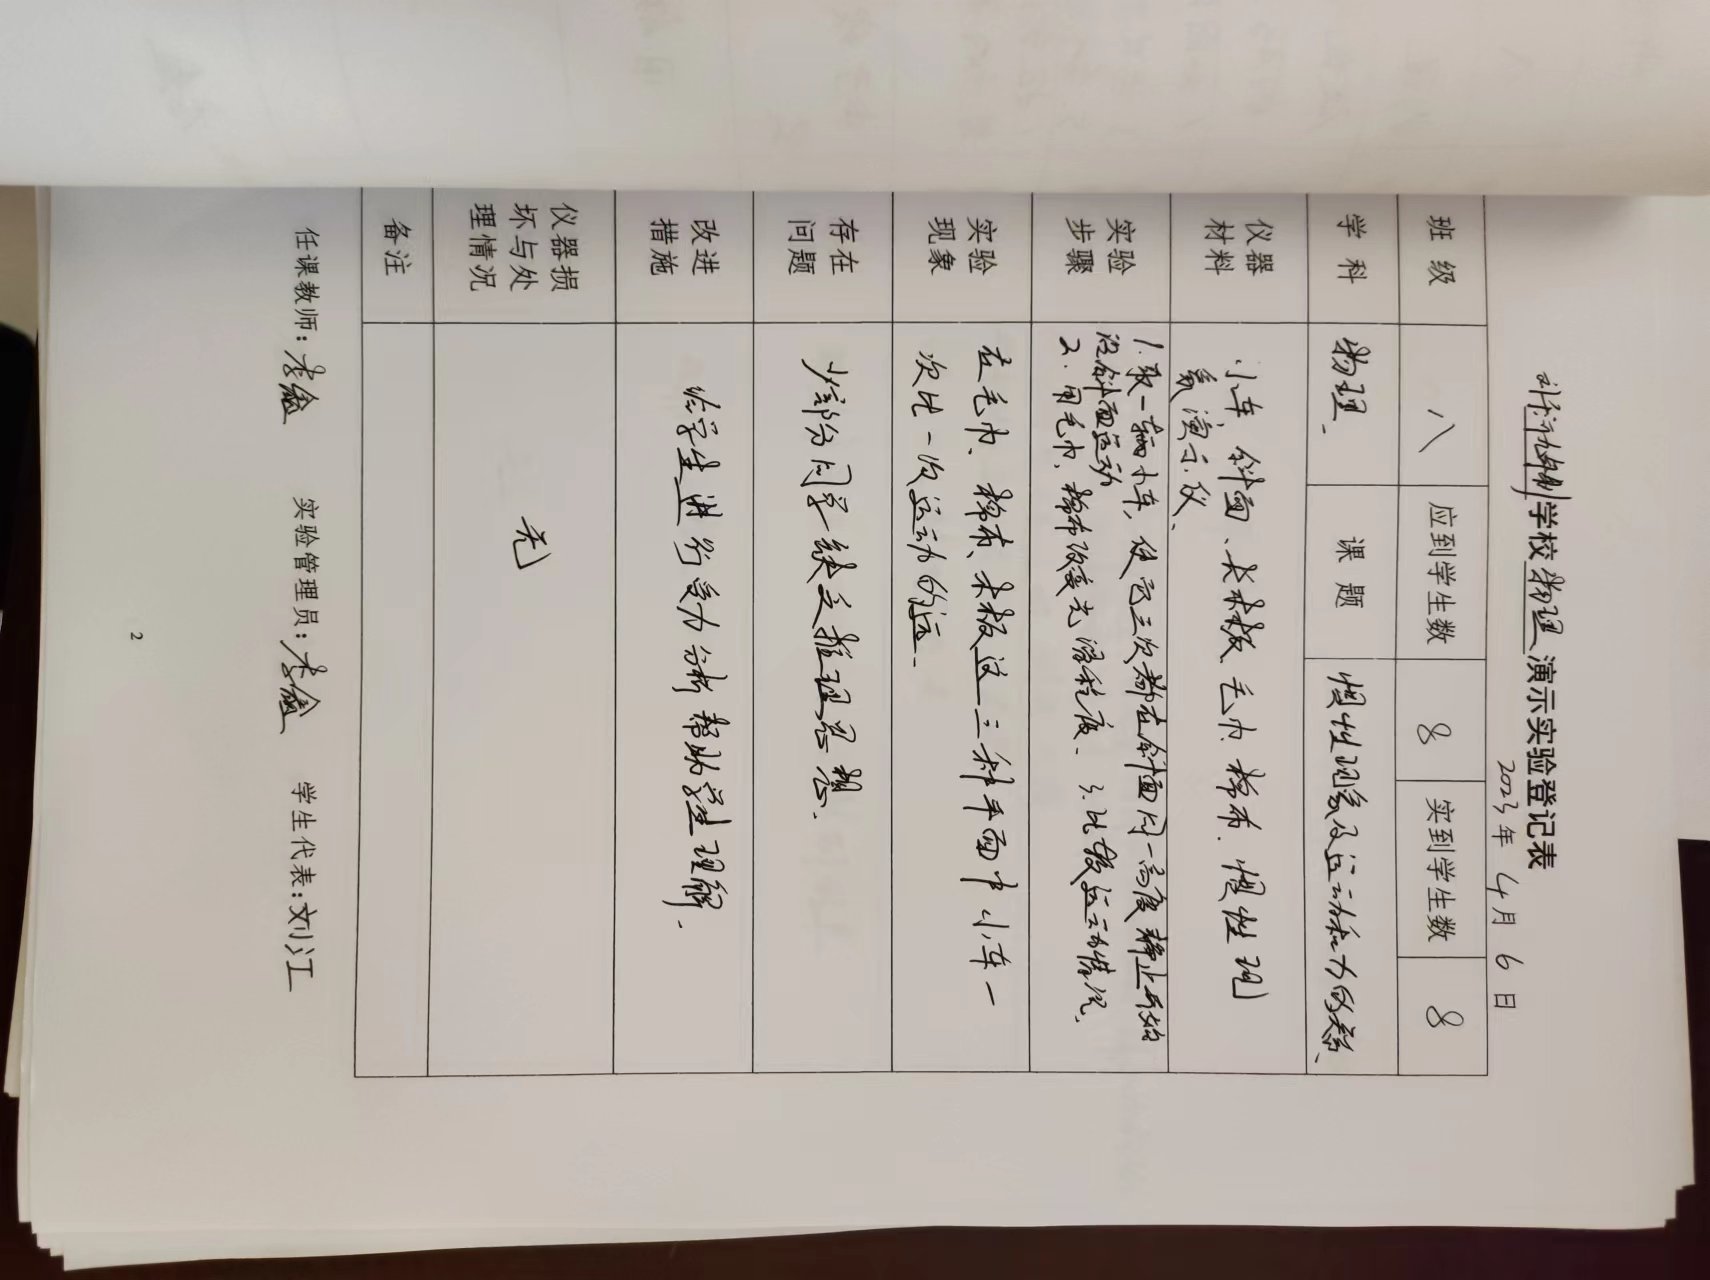 学校物理演示实验登记表
2023年4月6日
班级 八 应到学生数 8 实到学生数 8
学科 物理. 课题 惯性现象及运动和力的关系.
仪器材料 小车、斜面、长木板、毛巾、棉布、惯性现
象演示仪、
实验步骤 1.取一辆小车，使它三次都在斜面同一高度静止开始
沿斜面运动
2.用毛巾、棉布改变光滑程度、3.比较运动情况.
实验现象 在毛巾、棉布、木板这三种平面中小车一
次比一次运动的远.
存在问题 少部份同学缺乏推理思想.
改进措施 给学生进行受力分析帮助学生理解.
仪器损坏与处理情况 无
备注
任课教师：李 实验管理员：李 学生代表：刘江
2